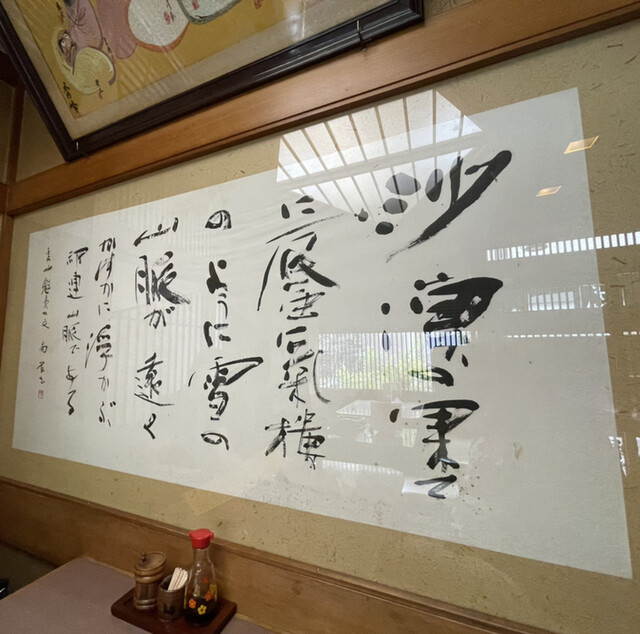 沙漠の果て
に蜃気樓
のように雪の
山脈が遠く
かすかに浮かぶ
祁連山脈である